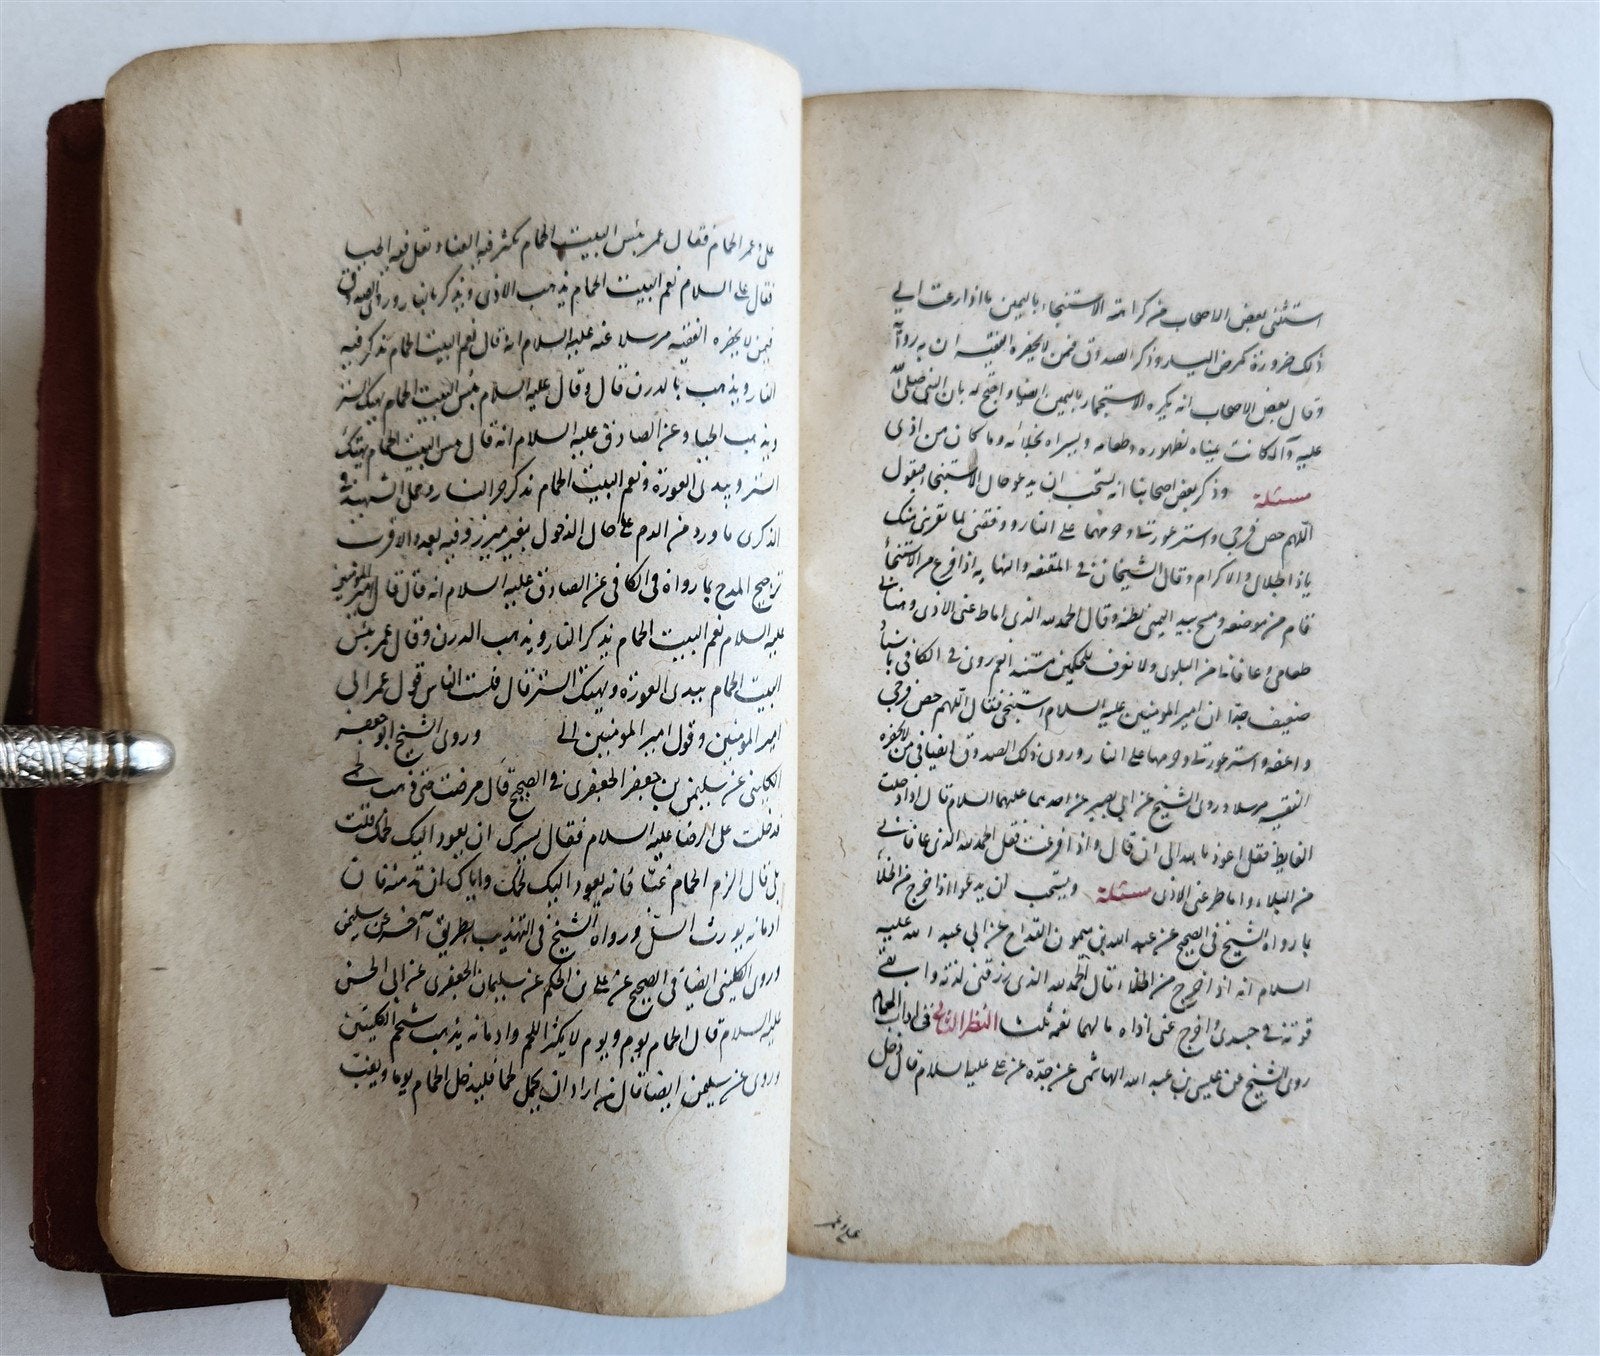 استثنى بعض الاصحاب من كراهة الاستنجاء باليمين ما اذا دعت الى
ذلك ضرورة كمرض اليسار وذكر الصدوق فى من لا يحضره الفقيه ان به رواية
وقال بعض الاصحاب انه يكره الاستجمار باليمين ايضا واحتج له بان النبى صلى الله
عليه وآله كانت يمناه لطهوره وطعامه ويسراه لخلائه وما كان من اذى
مسئلة وذكر بعض اصحابنا انه يستحب ان يدعو حال الاستنجاء فيقول
اللهم حصن فرجى واستر عورتى وحرمهما على النار ووفقنى لما تقربنى منك
ياذا الجلال والاكرام وقال الشيخان فى المقنعه والنهايه اذا فرغ من الاستنجاء
قام من موضعه ومسح بيده اليمنى بطنه وقال الحمد لله الذى اماط عنى الاذى وهنانى
طعامى وعافانى من البلوى ولا نعرف للحكمين مستند المروى فى الكافى باسناد
ضعيف جدا ان امير المؤمنين عليه السلام استنجى فقال اللهم حصن فرجى
واعفه واستر عورتى وحرمها على النار وروى ذلك الصدوق ايضا فى من لا يحضره
الفقيه مرسلا وروى الشيخ عن ابى بصير عن احدهما عليهما السلام قال اذا دخلت
الغايط فقل اعوذ بالله الى ان قال واذا فرغت فقل الحمد لله الذى عافانى
من البلاء واماط عنى الاذى مسئلة ويستحب ان يدعوا اذا خرج من الخلاء
بما رواه الشيخ فى الصحيح عن عبد الله بن ميمون القداح عن ابى عبد الله عليه
السلام انه اذا خرج من الخلاء قال الحمد لله الذى رزقنى لذته وابقى
قوته فى جسدى واخرج عنى اذاه يا لها نعمه ثلثا النظر الثانى فى اداب الحمام
روى الشيخ عن عيسى بن عبد الله الهاشمى عن جده عن على عليه السلام قال دخل
على وعمر
على وعمر الحمام فقال عمر بئس البيت الحمام يكثر فيه العناء ويقل فيه الحيا
فقال على السلام نعم البيت الحمام يذهب الاذى ويذكر بالنار وروى الصدوق
فى من لا يحضره الفقيه مرسلا عنه عليه السلام انه قال نعم البيت الحمام تذكر فيه
النار ويذهب بالدرن قال وقال عليه السلام بئس البيت الحمام يهتك الستر
ويذهب الحياء وعن الصادق عليه السلام انه قال بئس البيت الحمام يهتك
الستر ويبدى العورة ونعم البيت الحمام يذكر حر النار وحمل الشهيد فى
الذكرى ما ورد من الذم على حال الدخول بغير ميزر وفيه بعد والاقرب
ترجيح المدح بما رواه فى الكافى عن الصادق عليه السلام انه قال قال امير المؤمنين
عليه السلام نعم البيت الحمام يذكر النار ويذهب الدرن وقال عمر بئس
البيت الحمام يبدى العورة ويهتك الستر قال فنسب الناس قول عمر الى
امير المؤمنين وقول امير المؤمنين الى وروى الشيخ ابو جعفر
الكلينى عن سليمن بن جعفر الجعفرى فى الصحيح قال مرضت حتى ذهب لحمى
فدخلت على الرضا عليه السلام فقال يسرك ان يعود اليك لحمك قلت
بلى قال الزم الحمام غبا فانه يعود اليك لحمك واياك ان تدمنه فان
ادمانه يورث السل ورواه الشيخ فى التهذيب بطريق آخر عن سليمن
وروى الكلينى ايضا فى الصحيح عن على بن الحكم عن سليمان الجعفرى عن ابى الحسن
عليه السلام قال الحمام يوم ويوم لا يكثر اللحم وادمانه يذهب شحم الكليتين
وروى عن سليمن ايضا قال من اراد ان يحمل لحما فليدخل الحمام يوما ويغب